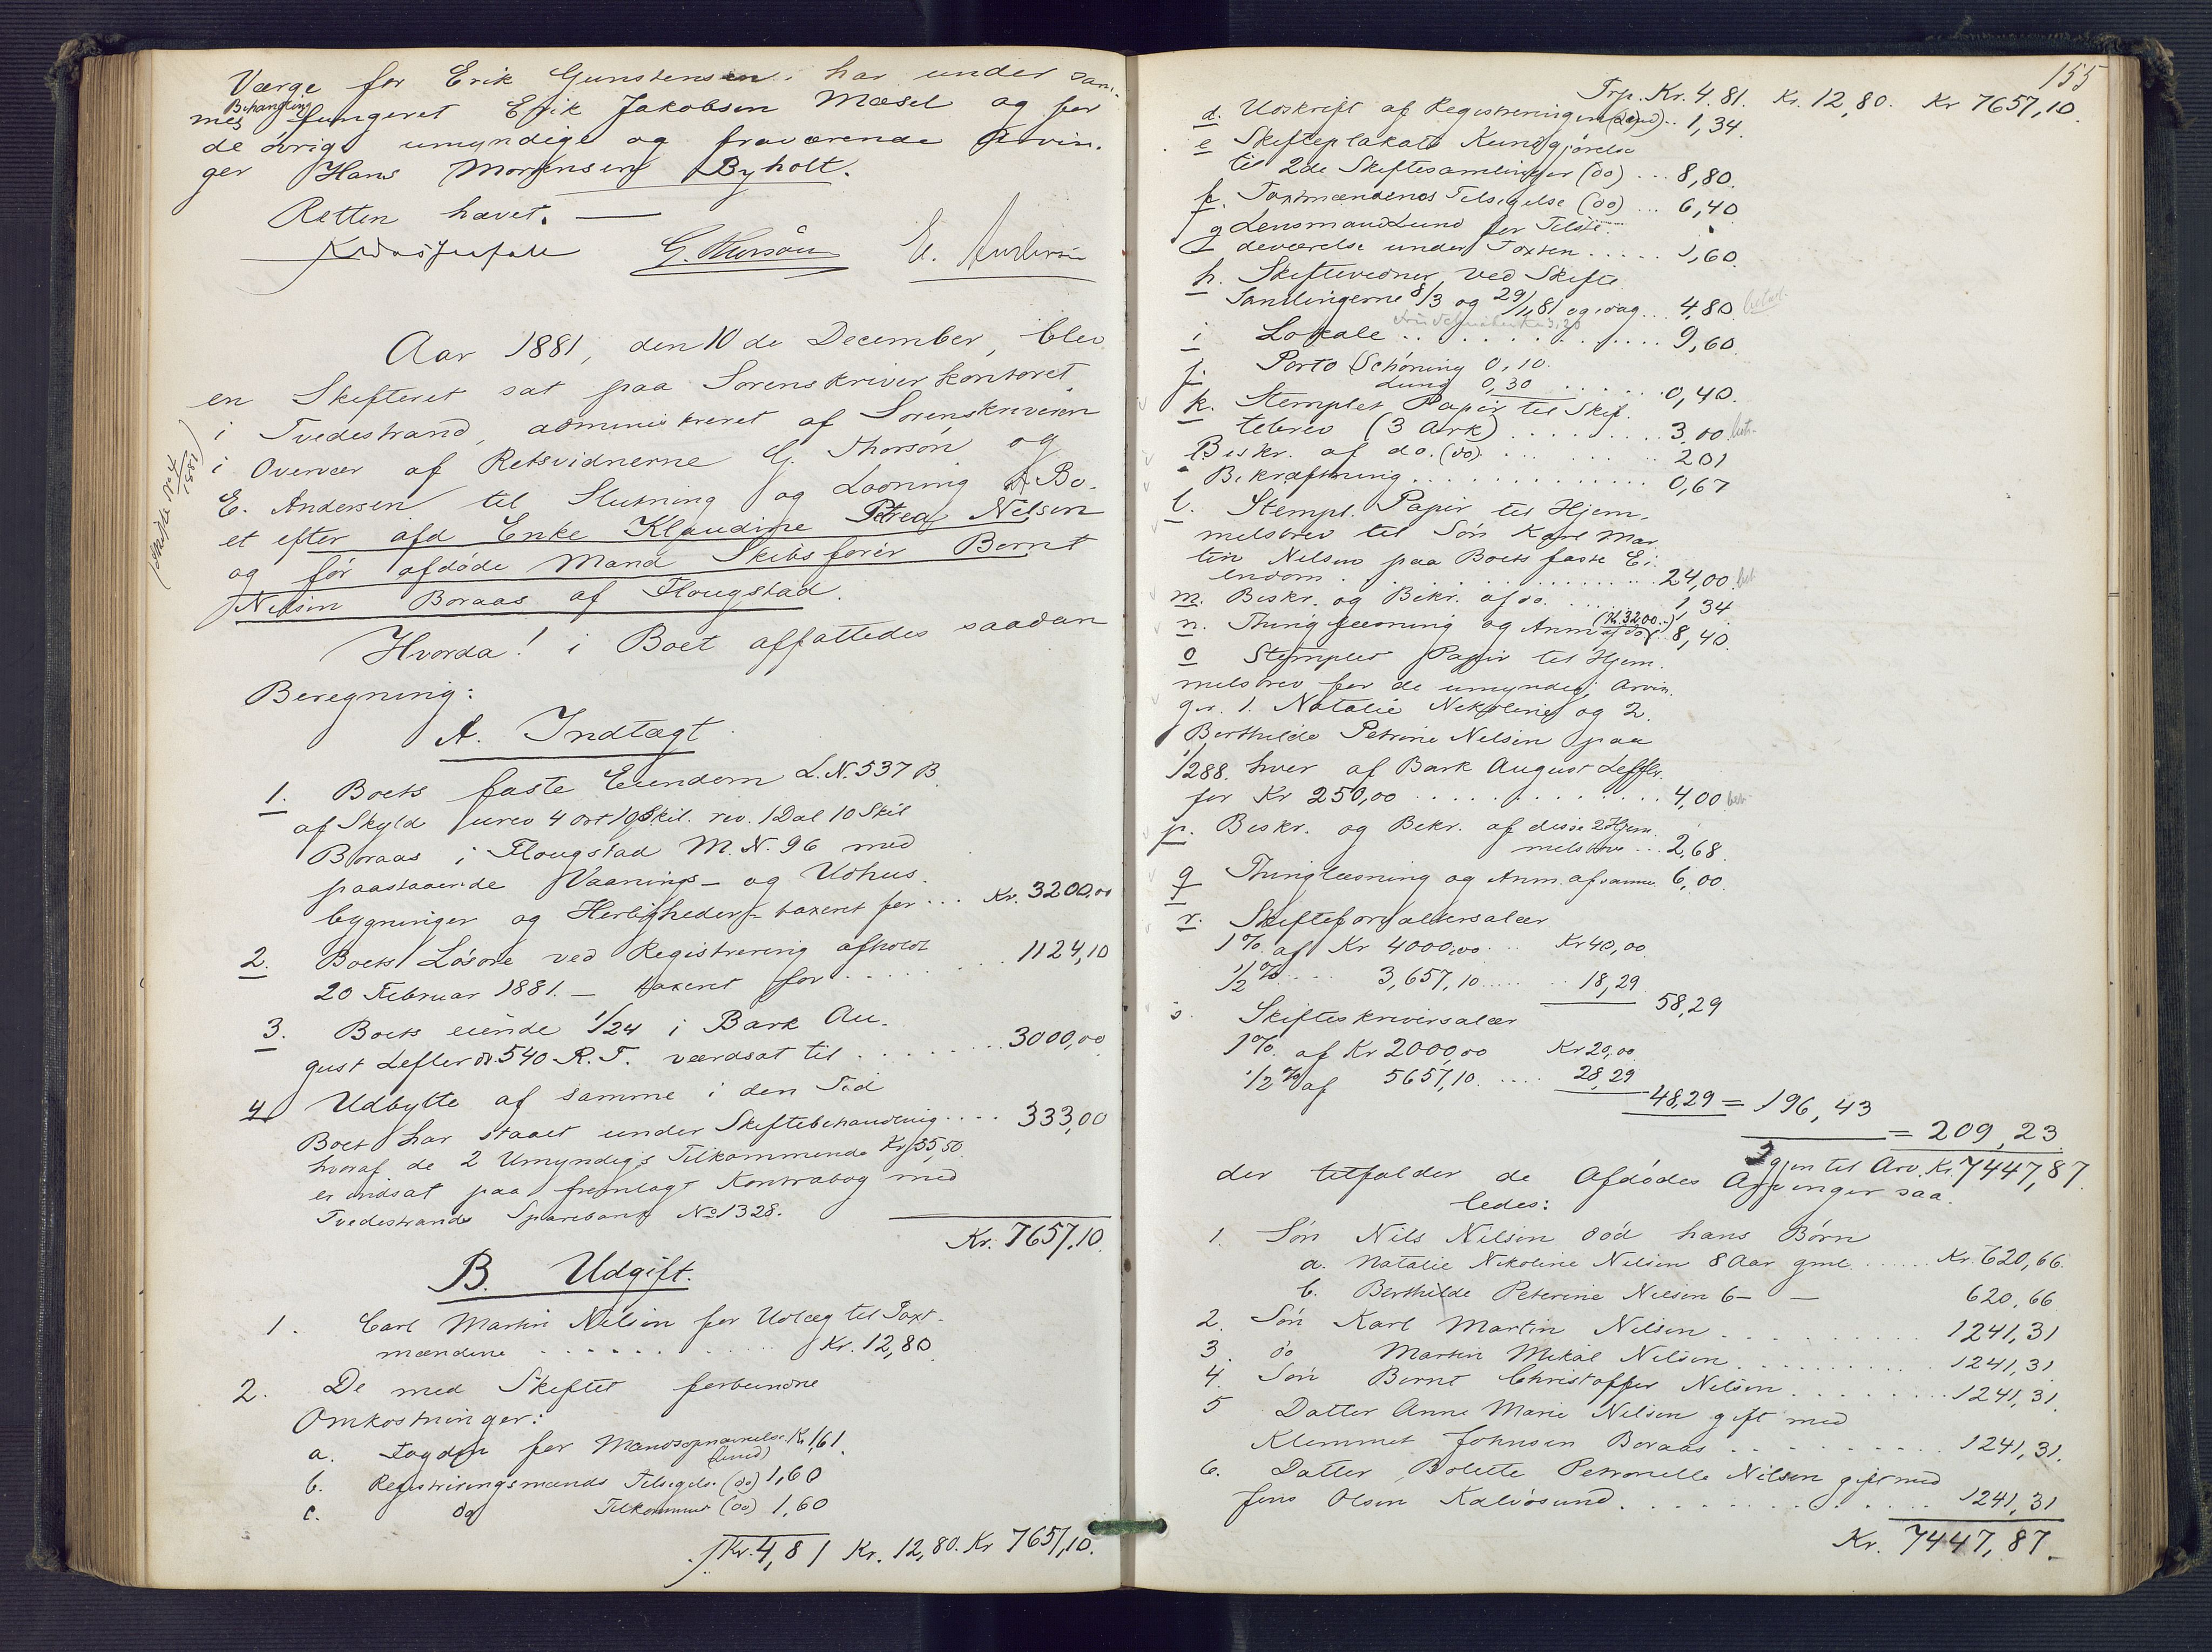 Værge for Erik Gunstensen har under sam-
mes Behandling fungeret Erik Jakobsen Mæsel og for
de øvrige umyndige og fraværende Arvin-
ger Hans Mortensen Byholt.
Retten hævet. —
G. Thorsön E. Andersen
Aar 1881, den 10de December, blev
en Skifteret sat paa Sorenskriverkontoret
i Tvedestrand, administreret af Sorenskriveren
i Overvær af Retsvidnerne G. Thorsön og
E. Andersen til Slutning og Lodning i Bo-
et efter afd Enke Klaudine Petrea Nelsen
og før afdöde Mand Skibsförer Bernt
Nelsen Boraas af Flougstad.
(Skifte No 4/1881)
Hvorda! i Boet affattedes saadan
Beregning:
A. Indtægt.
1. Boets faste Eiendom L.N. 537 B
af Skyld urev 4 Ort 19 Skil. rev. 1 Dal 10 Skil
Boraas i Flougstad M.N. 96 med
paastaaende Vaanings- og Udhus-
bygninger og Herligheder - taxeret for ... Kr. 3200,00
2. Boets Lösöre ved Registrering afholdt
20 Februar 1881. — taxeret for ...... 1124,10
3. Boets eiende 1/24 i Bark Au-
gust Lefler dr. 540 R.T. værdsat til ....... 3000,00
4 Udbytte af samme i den Tid
Boet har staaet under Skiftebehandling .... 333,00
hvoraf de 2 Umyndiges Tilkommende Kr 55,50
er indsat paa fremlagt Kontrabog med
Tvedestrands Sparebank No 1328.
Kr. 7657,10.
B. Udgift.
1. Carl Martin Nelsen for Udlæg til Taxt-
mændene ........ Kr. 12,80
2. De med Skiftet forbundne
Omkostninger:
a. Fogden for Mandsopnævnelse Kr 1,61.
(Lund)
b. Registreringsmænds Tilsigelse (do) 1,60
c. do Tilkommende (do) 1,60
Kr. 4,81 Kr. 12,80. Kr 7657,10.
155
Trp. Kr. 4.81. Kr. 12,80. Kr 7657,10.
d. Udskrift af Registreringen (Lund) .. 1,34.
e Skifteplakats Kundgjörelse
til 2de Skiftesamlinger (do) ... 8,80.
f. Taxtmændenes Tilsigelse (do) ... 6,40
g Lensmand Lund for Tilste-
deværelse under Taxten ..... 1,60.
h. Skiftevidner ved Skifte
Samlingerne 8/3 og 29/11 81 og idag ... 4,80.
i Lokale ........... 9,60.
j. Porto (Schöning 0,10.
Lund 0,30 ...... 0,40.
k. Stemplet Papir til Skif-
tebrev (3 Ark) ........ 3,00 bet.
Beskr. af do. (do) ........ 2 01
Bekræftning ............. 0,67
l. Stempl. Papir til Hjem-
melsbrev til Sön Karl Mar-
tin Nelsen paa Boets faste Ei-
endom .................. 24,00. bet.
m. Beskr. og Bekr. af do. ..... 1,34
n. Thinglæsning og Anm af do (Kr. 3200.-) 8,40.
o Stemplet Papir til Hjem-
melsbrev for de umyndige Arvin-
ger 1. Natalie Nekoline og 2.
Berthilde Petrine Nelsen paa
1/288. hver af Bark August Leffler
for Kr 250,00 ............ 4,00 bet.
p. Beskr. og Bekr. af disse 2 Hjem-
melsbreve ... 2,68.
q Thinglæsning og Anm. af samme 6,00.
r. Skifteforvaltersalær
1% af Kr 4000,00 ... Kr 40,00.
1/2 % .... 3,657,10 ..... 18,29.
58,29
s. Skifteskriversalær
1% af Kr 2000,00 Kr 20,00.
1/2 % af 5657,10. .... 28,29
48,29 = 196,43
= 209,23.
Igjen til Arv. Kr. 7447,87.
der tilfalder de Afdödes Arvinger saa-
ledes:
1. Sön Nils Nilsen död hans Börn
a. Natalie Nekoline Nelsen 8 Aar gml. ..... Kr. 620,66.
b. Berthilde Peterine Nelsen 6 — — 620,66
2. Sön Karl Martin Nelsen .......... 1241,31
3. do Martin Mikal Nelsen .......... 1241,31.
4. Sön Bernt Christoffer Nelsen ........ 1241,31.
5 Datter Anne Marie Nelsen gift med
Klemmet Johnsen Boraas ......... 1241,31.
6. Datter Bolette Petronelle Nelsen gift med
Jens Olsen Kalvösund .............. 1241,31
Kr. 7447,87.